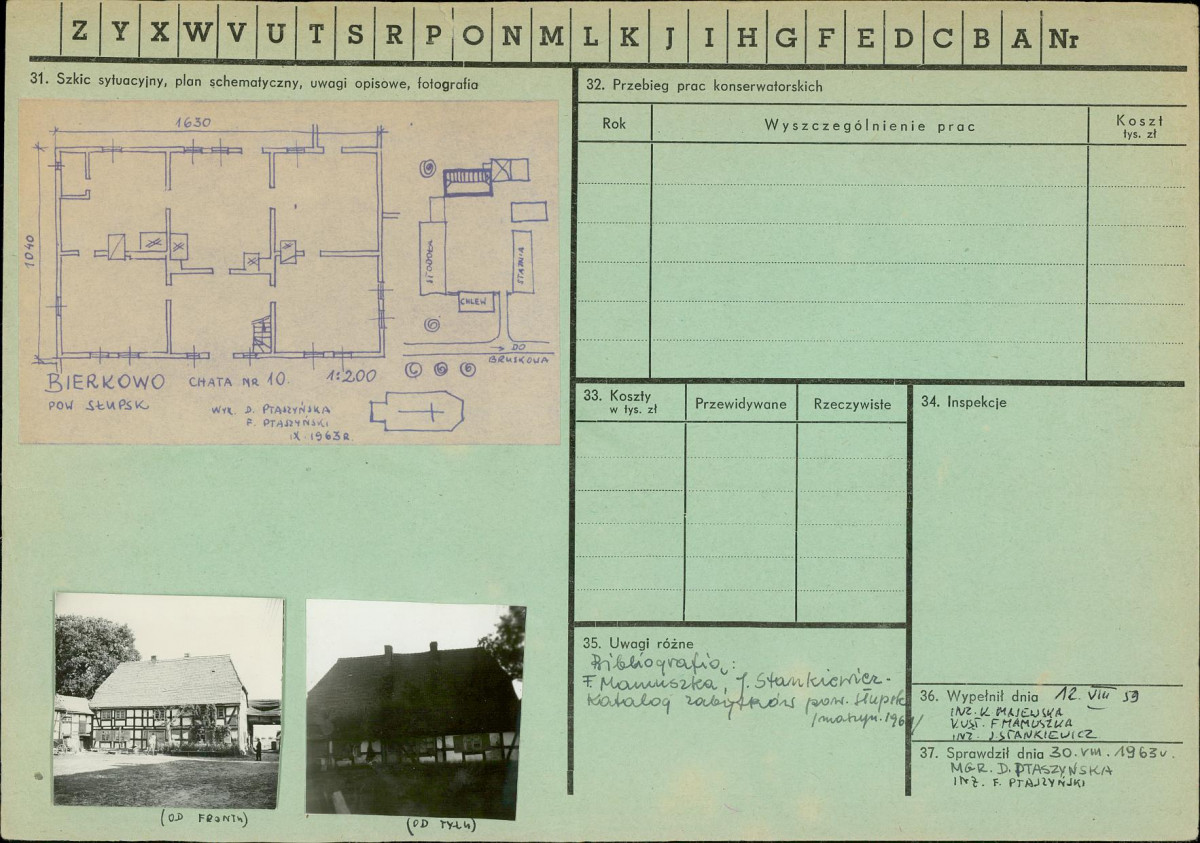 Z Y X W V U T S R P O N M L K J I H G F E D C B A Nr
31. Szkic sytuacyjny, plan schematyczny, uwagi opisowe, fotografia
1630
1040
STODOŁA
STAJNIA
CHLEW
→ DO
BRUSKOWA
BIERKOWO CHATA NR 10. 1:200
POW SŁUPSK
WYK. D. PTASZYŃSKA
F. PTASZYŃSKI
IX. 1963 R.
(OD FRONTU)
(OD TYŁU)
32. Przebieg prac konserwatorskich
Rok
Wyszczególnienie prac
Koszt
tys. zł
33. Koszty
w tys. zł
Przewidywane
Rzeczywiste
34. Inspekcje
35. Uwagi różne
Bibliografia:
F. Mamuszka, J. Stankiewicz -
Katalog zabytków pow. słupsk
/maszyn. 1961/
36. Wypełnił dnia 12. VIII 59
INŻ. K. MAJEWSKA
KUST. F. MAMUSZKA
INŻ. J. STANKIEWICZ
37. Sprawdził dnia 30. VIII. 1963 r.
MGR. D. PTASZYŃSKA
INŻ. F. PTASZYŃSKI